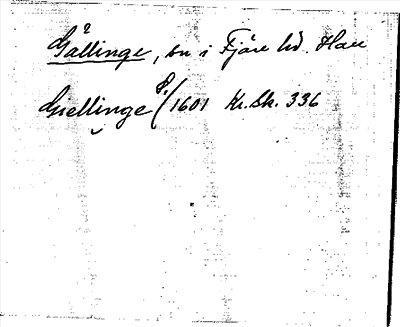 Gällinge, sn i Fjäre hd. Hall
Giellinge 8/1601 Kr.Sk. 336